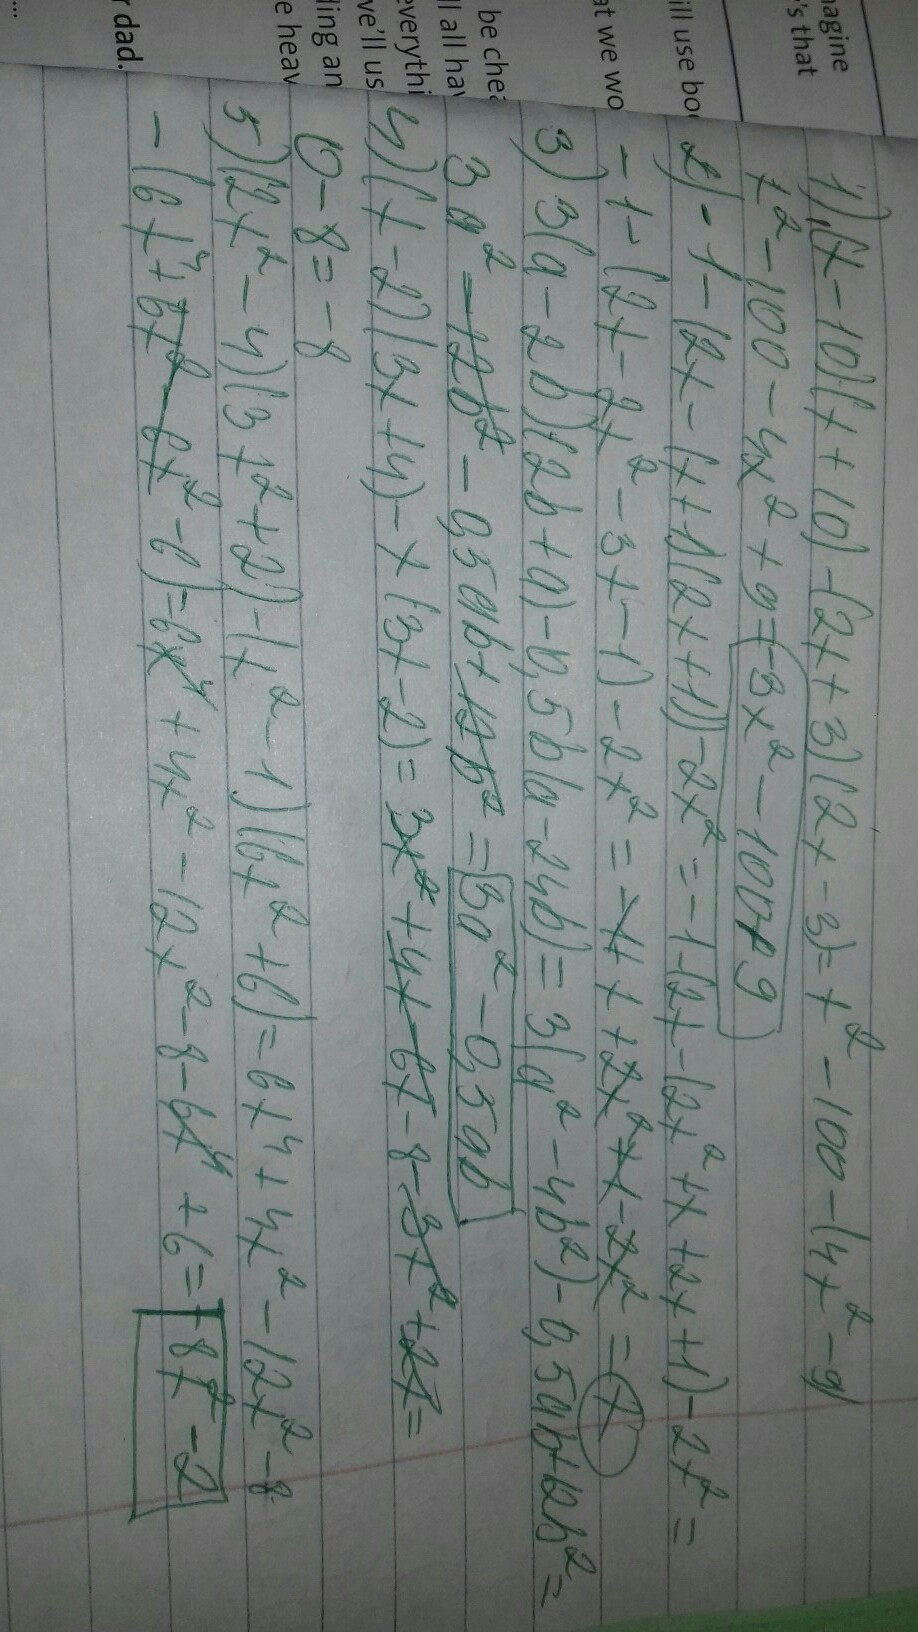 magine
's that
ill use bo
at we wo
be chea
ll all hav
everythi
ve'll us
ding an
e heav
r dad.
...
1) (x-10)(x+10)-(2x+3)(2x-3)=x²-100-(4x²-9)
x²-100-4x²+9=-3x²-100+9
2) -1-(2x-(x+1)(2x+1))-2x²=-1-(2x-(2x²+x+2x+1)-2x²=
-1-(2x-2x²-3x-1)-2x²=-1+x+2x²+1-2x²=x
3) 3(a-2b)(2b+a)-0,5b(a-24b)=3(a²-4b²)-0,5ab+12b²=
3a²-12b²-0,5ab+12b²=3a²-0,5ab
4) (x-2)(3x+4)-x(3x-2)=3x²+4x-6x-8-3x²+2x=
0-8=-8
5) (2x²-4)(3x²+2)-(x²-1)(6x²+6)=6x⁴+4x²-12x²-8
-(6x⁴+6x²-6x²-6)=6x⁴+4x²-12x²-8-6x⁴+6=-8x²-2